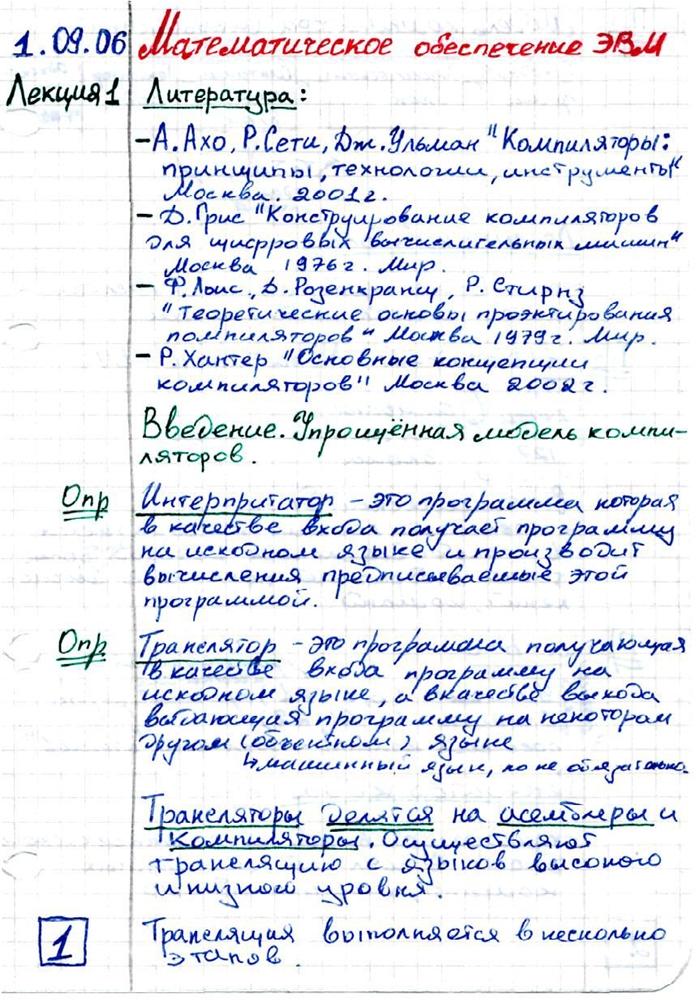 1.09.06 Математическое обеспечение ЭВМ
Лекция 1 Литература:
– А. Ахо, Р. Сети, Дж. Ульман "Компиляторы:
принципы, технологии, инструменты"
Москва. 2001г.
– Д. Грис "Конструирование компиляторов
для цифровых вычислительных машин"
Москва 1976г. Мир.
– Ф. Льис, Д. Розенкранц, Р. Стирнз
"Теоретические основы проэктирования
помпиляторов" Москва 1979г. Мир.
– Р. Хантер "Основные концепции
компиляторов" Москва 2002г.
Введение. Упрощённая модель компи-
ляторов.
Опр Интерпритатор – это программа которая
в качестве входа получает программу
на исходном языке и производит
вычисления предписываемые этой
программой.
Опр Транслятор – это программа получающая
в качестве входа программу на
исходном языке, а в качестве выхода
выдающая программу на некотором
другом (объектном) языке
↳ машинный язык, но не обязательно.
Трансляторы делятся на асемблеры и
компиляторы. Осуществляют
трансляцию с языков высокого
и низкого уровня.
Трансляция выполняется в несколько
этапов.
1